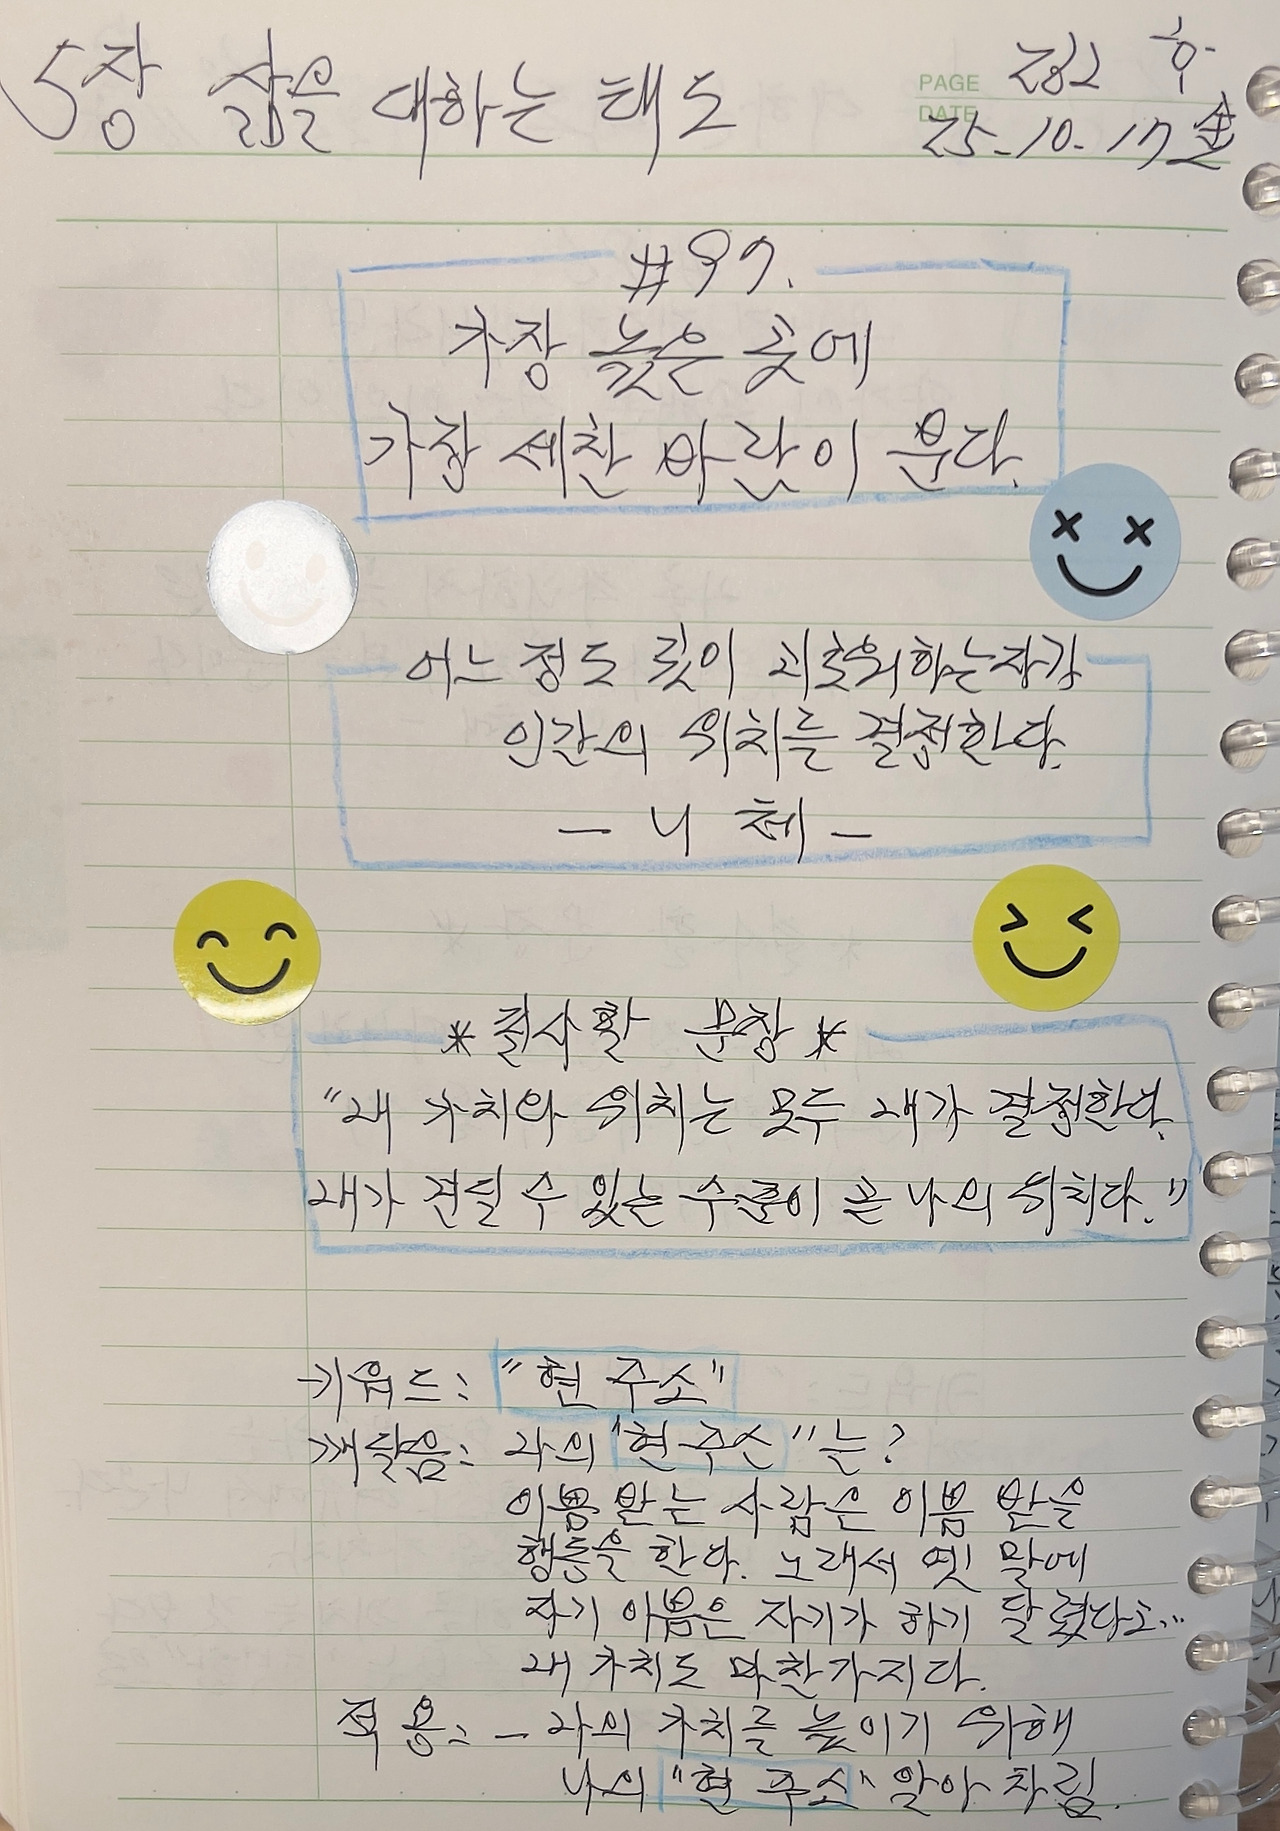 5장 삶을 대하는 태도
PAGE
DATE
25.10.17 金
#97.
가장 높은 곳에
가장 세찬 바람이 분다.
어느 정도 깊이 괴로워하는가가
인간의 위치를 결정한다.
- 니체 -
* 필사할 문장 *
"내 가치와 위치는 모두 내가 결정한다.
내가 견딜 수 있는 수준이 곧 나의 위치다."
키워드: "현 주소"
깨달음: 나의 "현 주소"는?
이쁨 받는 사람은 이쁨 받을
행동을 한다. 그래서 옛 말에
자기 이쁨은 자기가 하기 달렸다고...
내 가치도 마찬가지다.
적용: - 나의 가치를 높이기 위해
나의 "현 주소" 알아 차림.